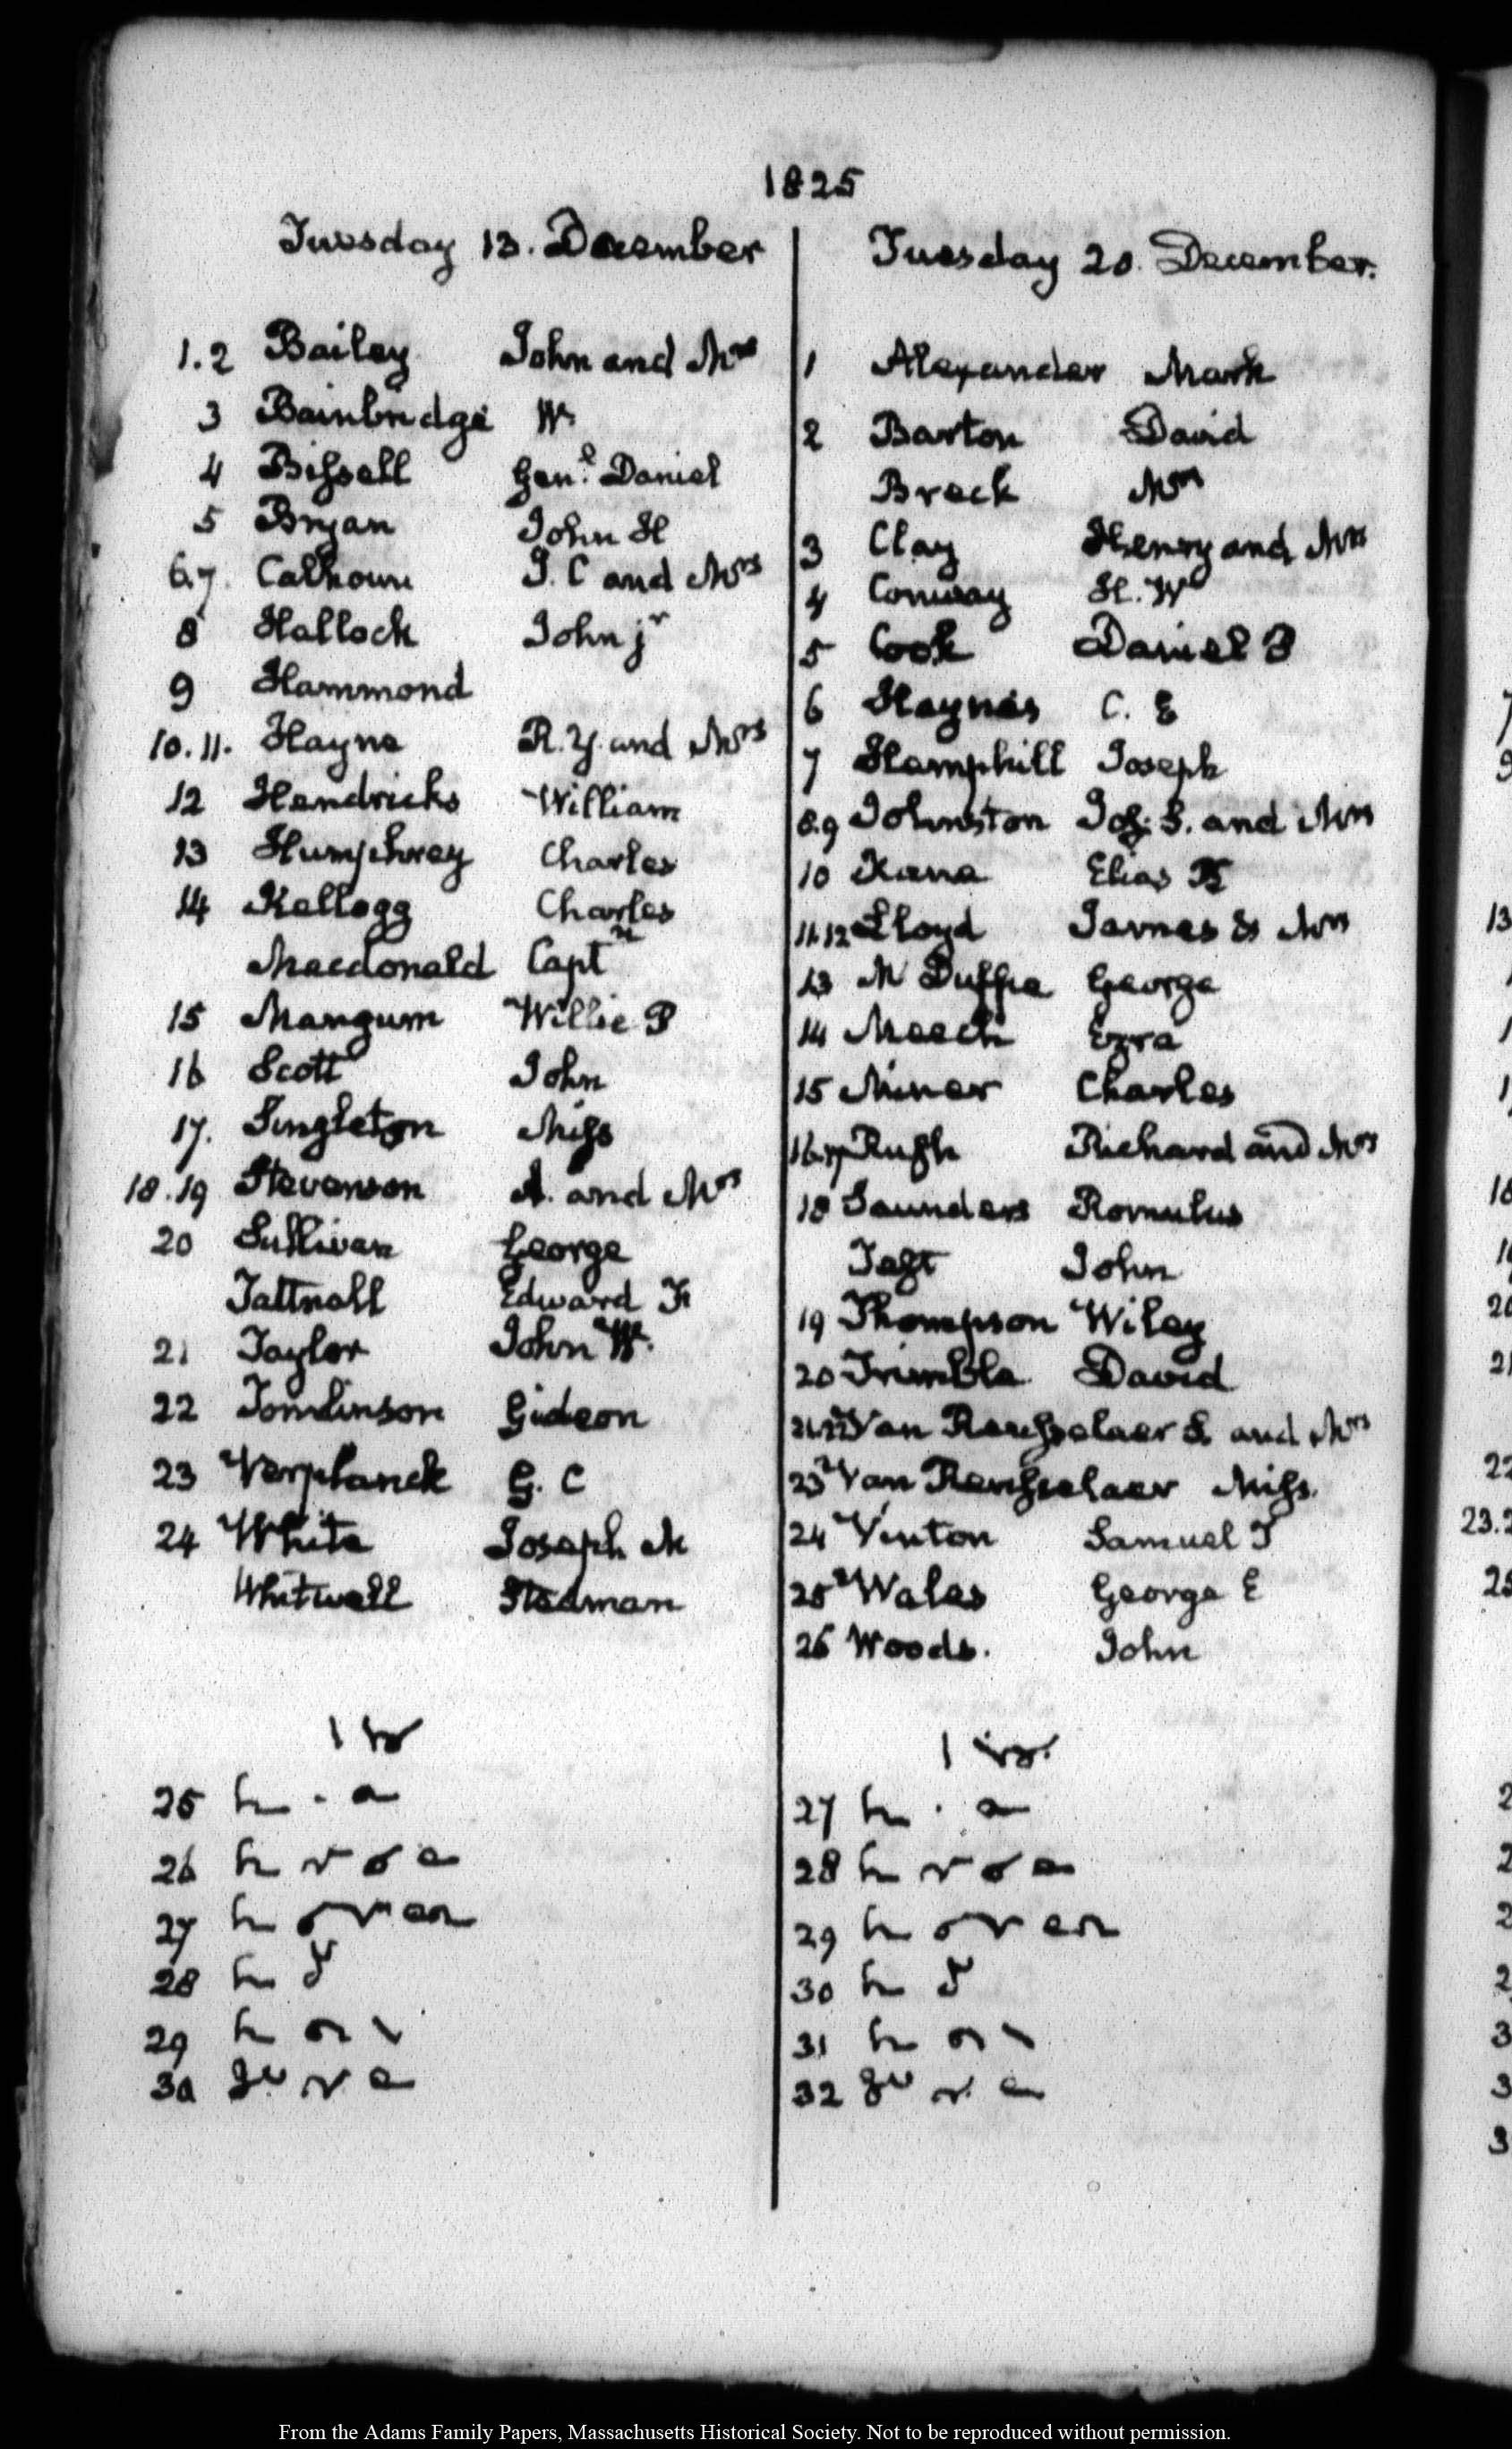 1825
Tuesday 13. December
1.2 Bailey John and Mrs
3 Bainbridge W.
4 Bissell Genl. Daniel
5 Bryan John H
6.7. Calhoun J. C and Mrs
8 Hallock John jr
9 Hammond
10.11. Hayne R. Y. and Mrs
12 Hendricks William
13 Humphrey Charles
14 Kellogg Charles
Macdonald Captn
15 Mangum Willie P
16 Scott John
17. Singleton Miss
18.19 Stevenson A. and Mrs
20 Sullivan George
Tattnall Edward F
21 Taylor John W.
22 Tomlinson Gideon
23 Verplanck G. C
24 White Joseph M
Whitwell Stedman
25
26
27
28
29
30
Tuesday 20. December.
1 Alexander Mark
2 Barton David
Breck Mrs
3 Clay Henry and Mrs
4 Conway H. W
5 Cook Daniel P
6 Haynes C. E
7 Hemphill Joseph
8.9 Johnston Jos: S. and Mrs
10 Kane Elias K
11.12 Lloyd James & Mrs
13 McDuffie George
14 Meech Ezra
15 Miner Charles
16.17 Rush Richard and Mrs
18 Saunders Romulus
Taft John
19 Thompson Wiley
20 Trimble David
21.22 Van Rensselaer S. and Mrs
23 Van Rensselaer Miss.
24 Vinton Samuel F
25 Wales George E
26 Woods. John
27
28
29
30
31
32
From the Adams Family Papers, Massachusetts Historical Society. Not to be reproduced without permission.